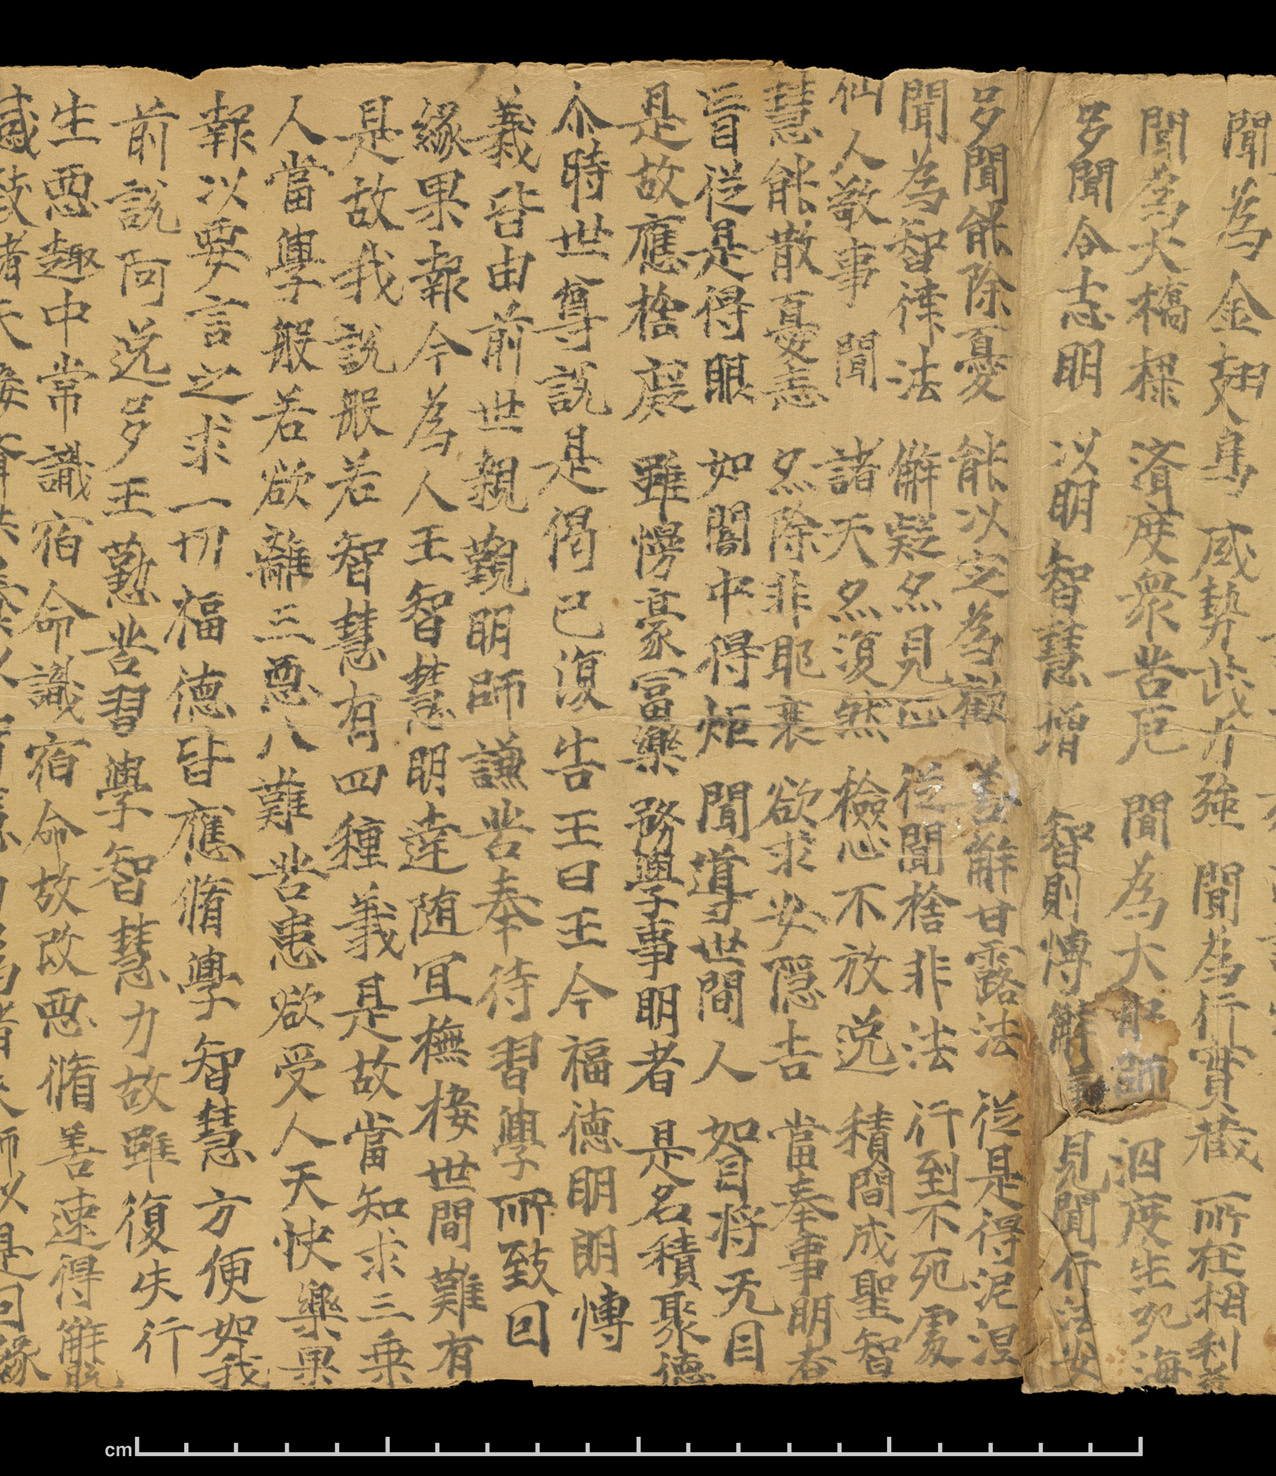 聞為金翅鳥 威勢武才強 聞為行寶藏 所在相利益
聞為大橋樑 濟度衆苦厄 聞為大船師 泅度生死海
多聞令志明 以明智慧增 智則慱解義 見聞行法安
多聞能除憂 能以定為歡 善解甘露法 從是得泥洹
聞為智律法 解疑亦見正 從聞捨非法 行到不死處
仙人敬事聞 諸天亦復然 檢心不放逸 積聞成聖智
慧能散憂恚 亦除非耶衰 欲求安隱吉 當奉事明者
盲從是得眼 如闇中得炬 聞導世間人 如目將无目
是故應捨癡 離慢豪冨樂 務學事明者 是名積聚德
尒時世尊說是偈已復告王曰王今福德明朗慱
義皆由前世親覲明師謙苦奉待習學所致因
緣果報今為人王智慧明達随冝橅接世間難有
是故我說般若智慧有四種義是故當知求三乗
人當學般若欲離三惡八難苦患欲受人天快樂果
報以要言之求一切福德皆應脩學智慧方便如我
前說阿逸多王懃苦習學智慧力故雖復失行
生惡趣中常識宿命識宿命故改惡脩善速得解脫